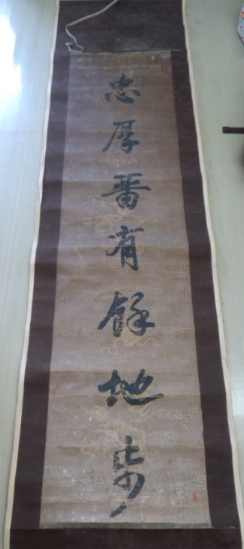 忠厚畱有餘地步